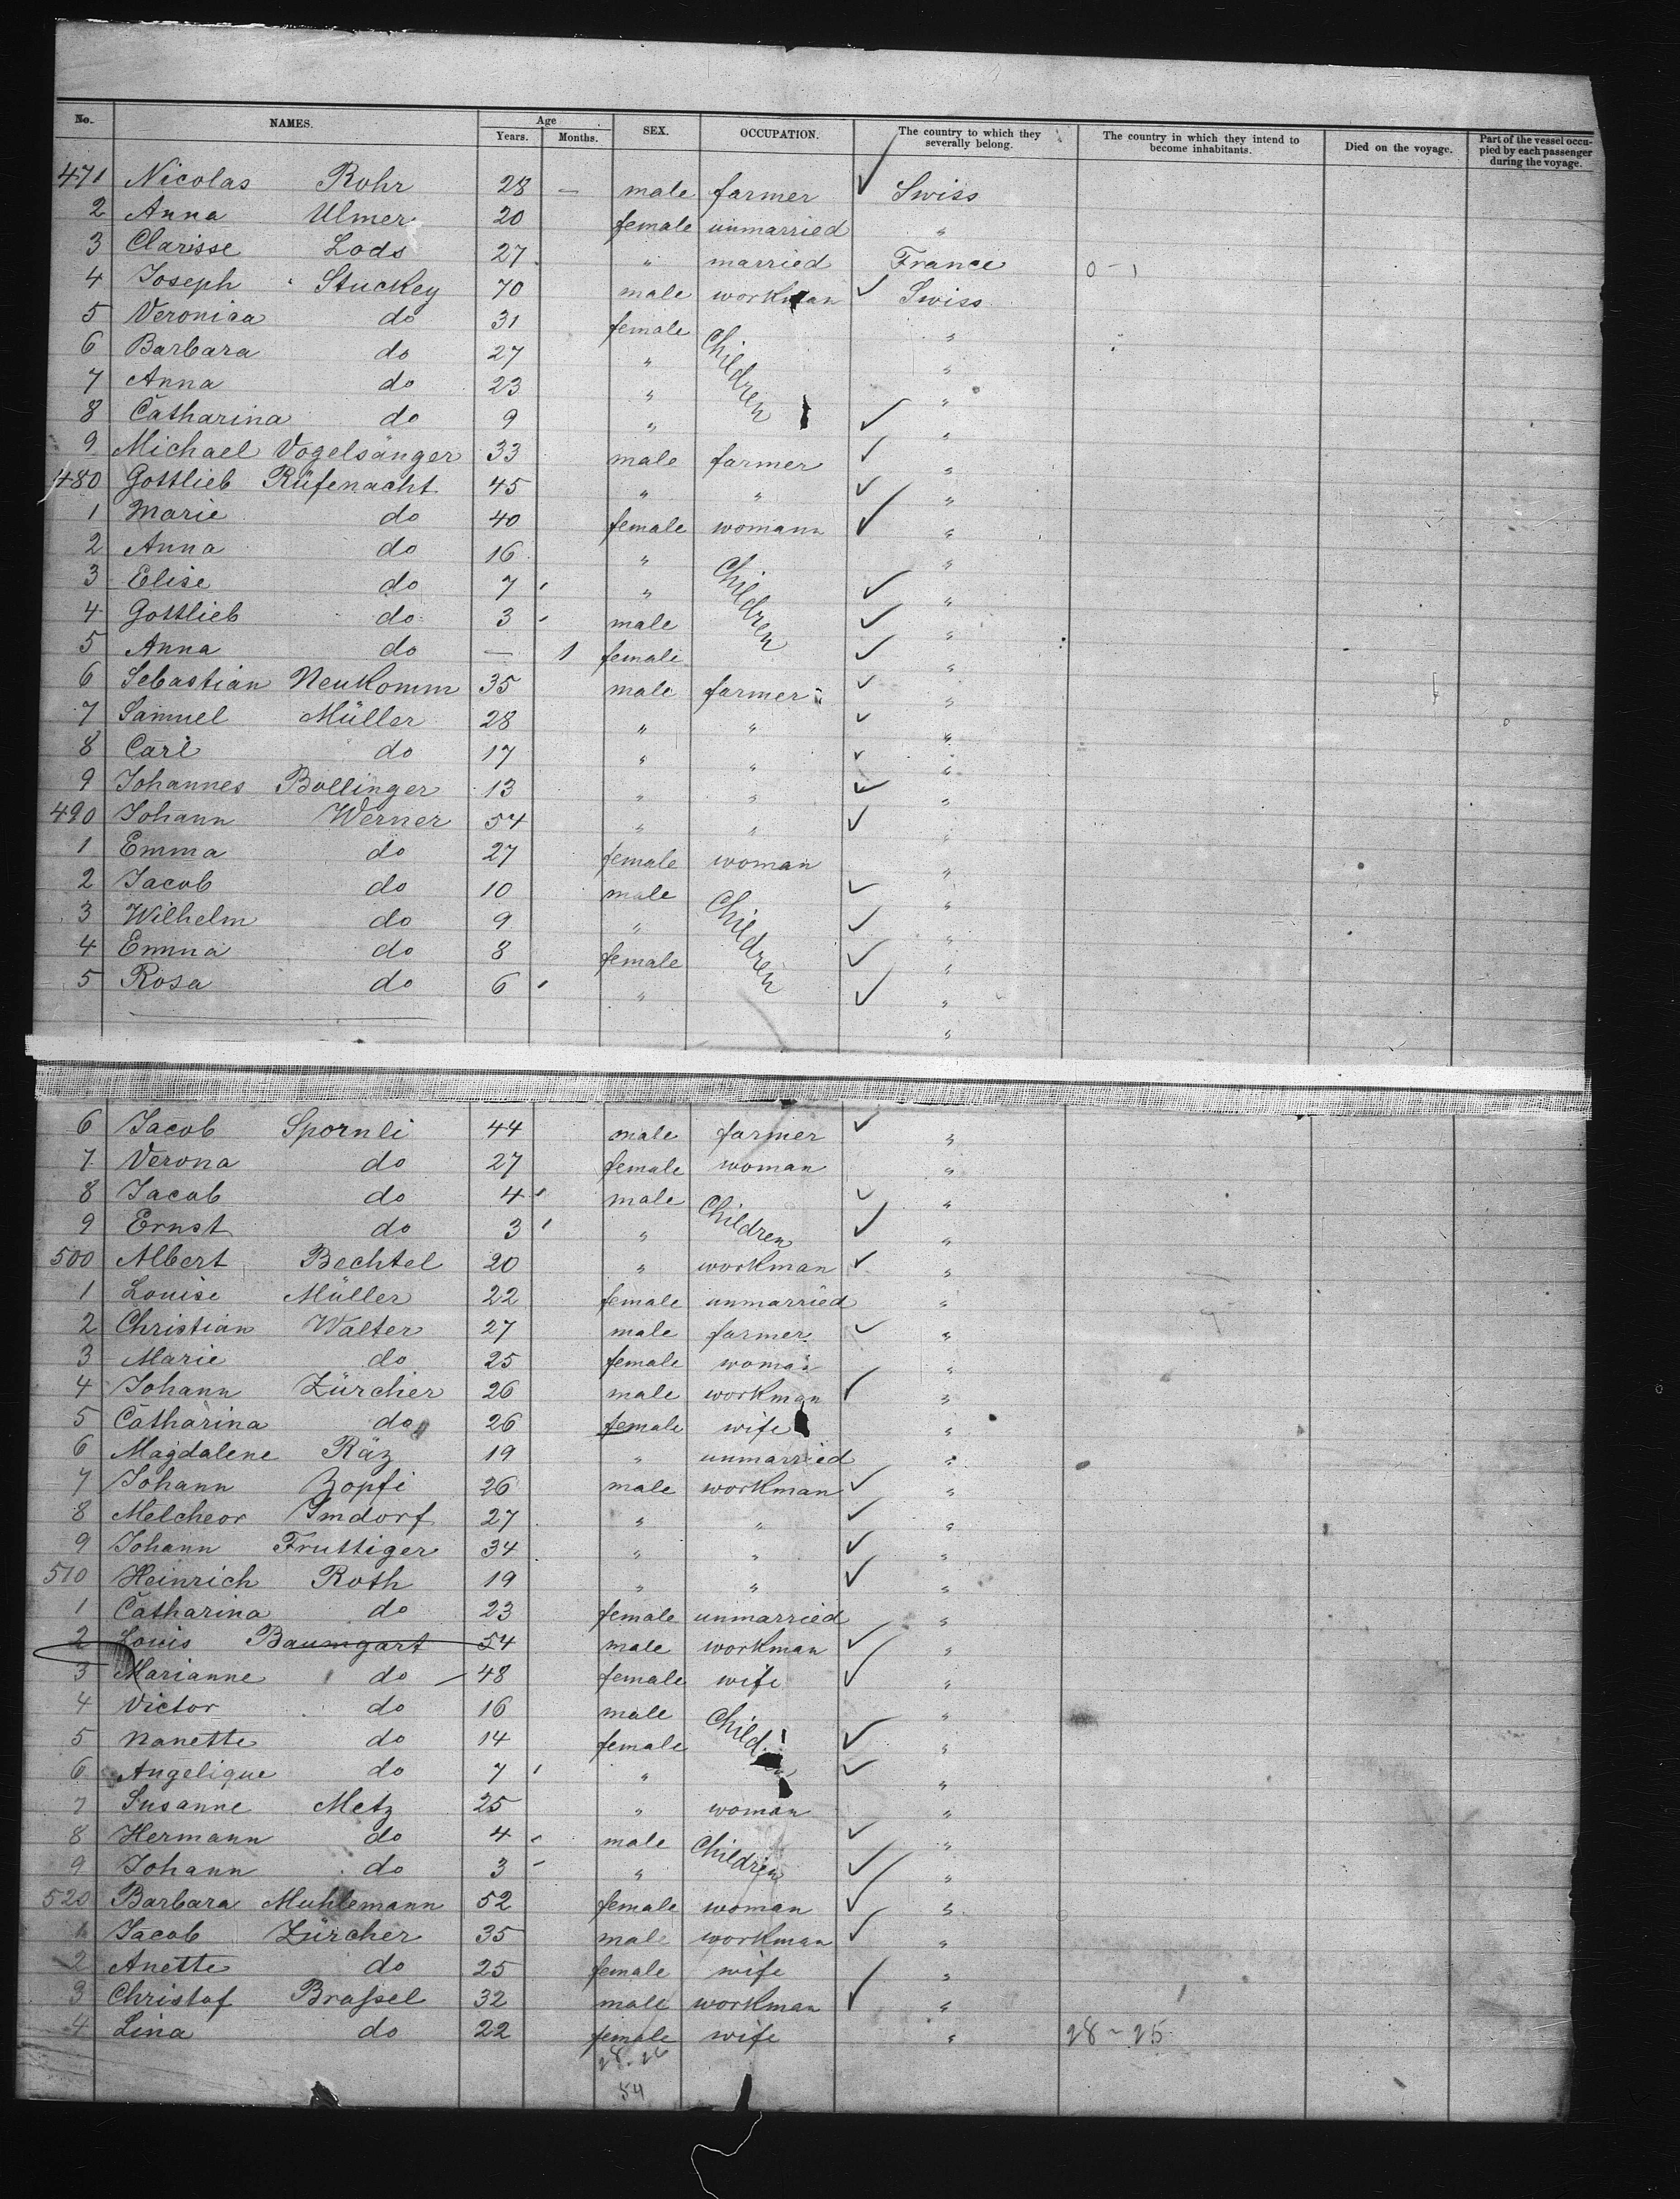 No. NAMES. Age Years. Months. SEX. OCCUPATION. The country to which they severally belong. The country in which they intend to become inhabitants. Died on the voyage. Part of the vessel occupied by each passenger during the voyage.
471 Nicolas Rohr 28 — male farmer ✓ Swiss
2 Anna Ulmer 20 female unmarried "
3 Clarisse Lods 27 " married France 0-1
4 Joseph Stuckey 70 male workman ✓ Swiss
5 Veronica do 31 female Children "
6 Barbara do 27 " "
7 Anna do 23 " "
8 Catharina do 9 " ✓ "
9 Michael Vogelsänger 33 male farmer ✓ "
480 Gottlieb Rüfenacht 45 " " ✓ "
1 Marie do 40 female womann ✓ "
2 Anna do 16 " Children "
3 Elise do 7 " ✓ "
4 Gottlieb do 3 male ✓ "
5 Anna do — 1 female ✓ "
6 Sebastian Neukomm 35 male farmer ✓ "
7 Samuel Müller 28 " " ✓ "
8 Carl do 17 " " ✓ "
9 Johannes Bollinger 13 " " ✓ "
490 Johann Werner 54 " " ✓ "
1 Emma do 27 female woman "
2 Jacob do 10 male Children ✓ "
3 Wilhelm do 9 " ✓ "
4 Emma do 8 female ✓ "
5 Rosa do 6 " ✓ "
"
6 Jacob Spornli 44 male farmer ✓ "
7 Verona do 27 female woman "
8 Jacob do 4 male Children ✓ "
9 Ernst do 3 " ✓ "
500 Albert Bechtel 20 " workman ✓ "
1 Louise Müller 22 female unmarried "
2 Christian Walter 27 male farmer ✓ "
3 Marie do 25 female woman "
4 Johann Zürcher 26 male workman ✓ "
5 Catharina do 26 female wife "
6 Magdalene Räz 19 " unmarried "
7 Johann Zopfi 26 male workman ✓ "
8 Melcheor Imdorf 27 " " ✓ "
9 Johann Fruttiger 34 " " ✓ "
510 Heinrich Roth 19 " " ✓ "
1 Catharina do 23 female unmarried "
2 Louis Baumgart 54 male workman ✓ "
3 Marianne do 48 female wife ✓ "
4 Victor do 16 male Child "
5 Nanette do 14 female ✓ "
6 Angelique do 7 " ✓ "
7 Susanne Metz 25 " woman "
8 Hermann do 4 male Children ✓ "
9 Johann do 3 " ✓ "
520 Barbara Muhlemann 52 female woman ✓ "
1 Jacob Zürcher 35 male workman ✓ "
2 Anette do 25 female wife "
3 Christof Braſsel 32 male workman ✓ "
4 Lina do 22 female wife " 28-25
54